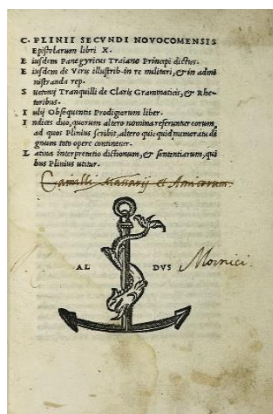 C. PLINII SECVNDI NOVOCOMENSIS
Epistolarum libri X.
Eiusdem Panegyricus Traiano Principi dictus.
Eiusdem de Viris illustrib. in re militari, & in admi
nistranda rep.
Suetonij Tranquilli de Claris Grammaticis, & Rhe
toribus.
Iulij Obsequentis Prodigiorum liber.
Indices duo, quorum altero nomina referuntur eorum,
ad quos Plinius scribit, altero quicquid memoratu di
gnum toto opere continetur.
Latina interpretatio dictionum, & sententiarum, qui
bus Plinius utitur.
Camilli et Amicorum.
AL DVS